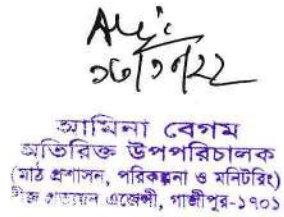 আমিনা বেগম
অতিরিক্ত উপপরিচালক
(মাঠ প্রশাসন, পরিকল্পনা ও মনিটরিং)
বীজ প্রত্যয়ন এজেন্সী, গাজীপুর-১৭০১